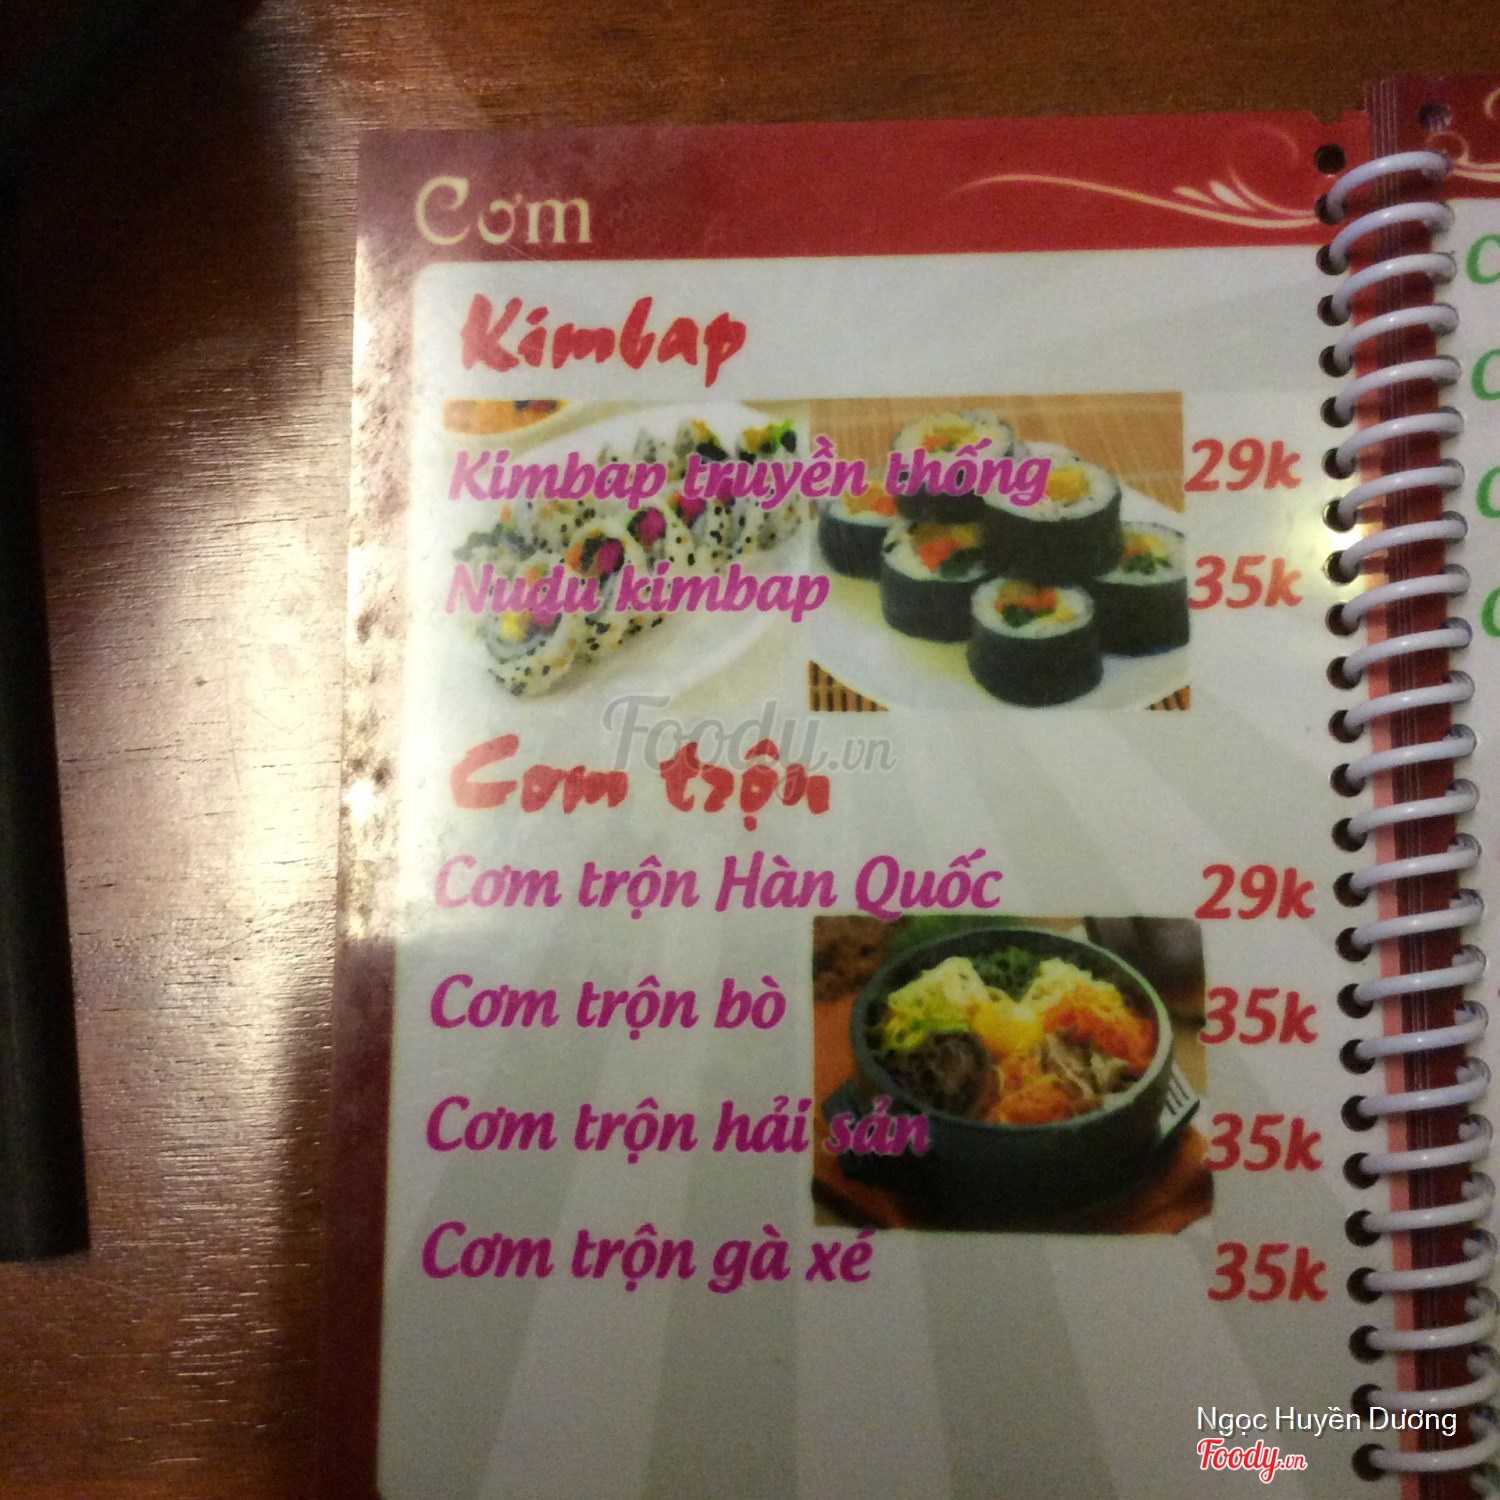 Cơm
Kimbap
Kimbap truyền thống 29k
Nudu kimbap 35k
Foody.vn
Cơm trộn
Cơm trộn Hàn Quốc 29k
Cơm trộn bò 35k
Cơm trộn hải sản 35k
Cơm trộn gà xé 35k
Ngọc Huyền Dương
Foody.vn